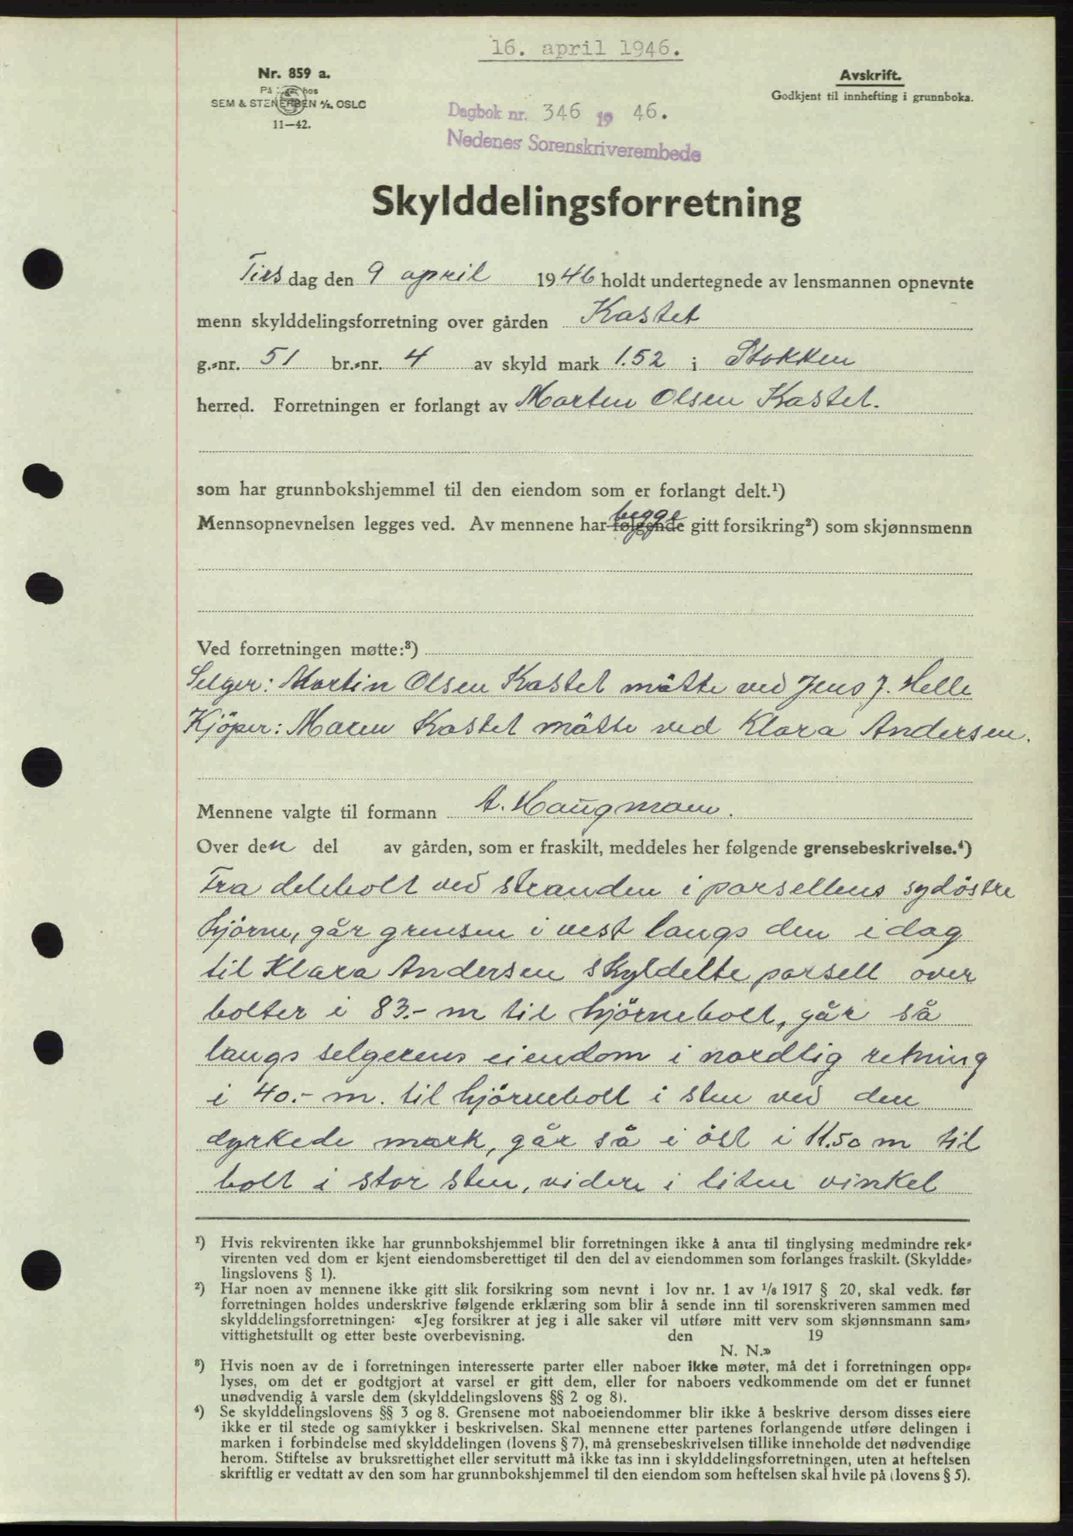 16. april 1946.
Nr. 859 a.
Avskrift.
Godkjent til innhefting i grunnboka.
SEM & STENERSEN A/S. OSLO
11—42.
Dagbok nr. 346 19 46.
Nedenes Sorenskriverembede
Skylddelingsforretning
Tirsdag den 9 april 1946 holdt undertegnede av lensmannen opnevnte
menn skylddelingsforretning over gården Kastet
g.-nr. 51 br.-nr. 4 av skyld mark 1.52 i Stokken
herred. Forretningen er forlangt av Marten Olsen Kastet.
som har grunnbokshjemmel til den eiendom som er forlangt delt.¹)
Mennsopnevnelsen legges ved. Av mennene har følgende begge gitt forsikring²) som skjønnsmenn
Ved forretningen møtte:³)
Selger: Martin Olsen Kastet mötte ved Jens J. Helle
Kjöper: Maren Kastet mötte ved Klara Andersen.
Mennene valgte til formann A. Haugmann.
Over den del av gården, som er fraskilt, meddeles her følgende grensebeskrivelse.⁴)
Fra delebolt ved stranden i parsellens sydöstre
hjörne, går grensen i vest langs den i dag
til Klara Andersen skyldelte parsell over
bolter i 83.- m til hjörnebolt, går så
langs selgerens eiendom i nordlig retning
i 40.- m. til hjörnebolt i sten ved den
dyrkede mark, går så i öst i 11.50 m til
bolt i stor sten, videre i liten vinkel
¹) Hvis rekvirenten ikke har grunnbokshjemmel blir forretningen ikke å anta til tinglysing medmindre rek-
virenten ved dom er kjent eiendomsberettiget til den del av eiendommen som forlanges fraskilt. (Skyldde-
lingslovens § 1).
²) Har noen av mennene ikke gitt slik forsikring som nevnt i lov nr. 1 av 1/8 1917 § 20, skal vedk. før
forretningen holdes underskrive følgende erklæring som blir å sende inn til sorenskriveren sammen med
skylddelingsforretningen: «Jeg forsikrer at jeg i alle saker vil utføre mitt verv som skjønnsmann sam-
vittighetsfullt og etter beste overbevisning. den 19
N. N.»
³) Hvis noen av de i forretningen interesserte parter eller naboer ikke møter, må det i forretningen opp-
lyses, om det er godtgjort at varsel er gitt dem, eller for naboers vedkommende om det er funnet
unødvendig å varsle dem (skylddelingslovens §§ 2 og 8).
⁴) Se skylddelingslovens §§ 3 og 8. Grensene mot naboeiendommer blir ikke å beskrive dersom disses eiere
ikke er til stede og samtykker i beskrivelsen. Skal mennene etter partenes forlangende utføre delingen i
marken i forbindelse med skylddelingen (lovens § 7), må grensebeskrivelsen tillike inneholde det nødvendige
herom. Stiftelse av bruksrettighet eller servitutt må ikke tas inn i skylddelingsforretningen, uten at heftelsen
skriftlig er vedtatt av den som har grunnbokshjemmel til den eiendom som heftelsen skal hvile på (lovens § 5).